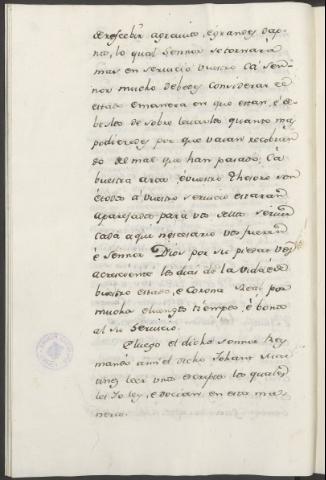 de rescebir agravio, e grandes dap-
nos, lo qual Sennor se tornara
mas en servicio vuestro. Ca Sen-
nor mucho debedes considerar el
estado e manera en que estan, é de-
bedes de sobre levarlos quanto mas
podieredes por que vaian recobran-
do del mal que han pasado, Ca
buestra arca, é vuestro Thesoro son
é todos á vuestro servicio estaran
aparejados para vos della servir
cada aqui necesario vos fueren
é Sennor Dios por su piedat vos
acresciente los dias de la vida é de
buestro estado, e Corona Real por
muchos e luengos tiempos, é bonos
al su Servicio.
E luego el dicho Sennor Rey
mandó a mi el dicho Johann Mar-
tines leer unos escriptos los quales
les Io ley, e decian en esta ma-
nera.